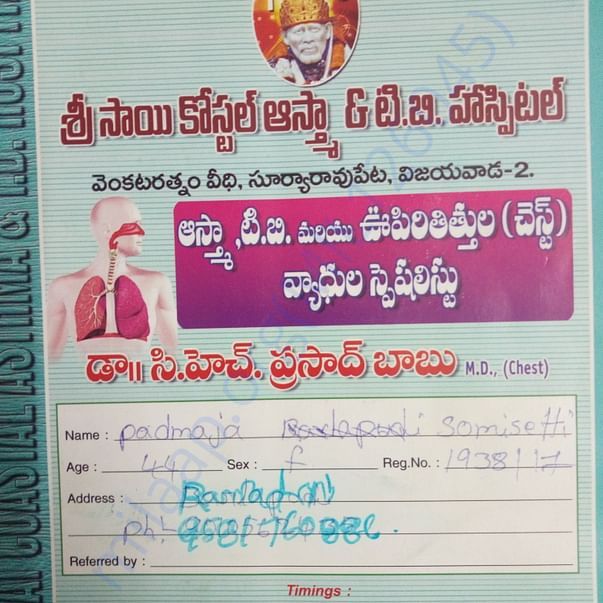 శ్రీ సాయి కోస్టల్ ఆస్త్మా & టి.బి. హాస్పిటల్
వెంకటరత్నం వీధి, సూర్యారావుపేట, విజయవాడ-2.
ఆస్త్మా ,టి.బి. మరియు ఊపిరితిత్తుల (చెస్ట్)
వ్యాధుల స్పెషలిస్టు
డా॥ సి.హెచ్. ప్రసాద్ బాబు M.D., (Chest)
Name : padmaja Somisetti
Age : 44 Sex : f Reg.No. : 1938/17
Address :
ph:
Referred by :
Timings :
COASTAL ASTHMA & T.B.